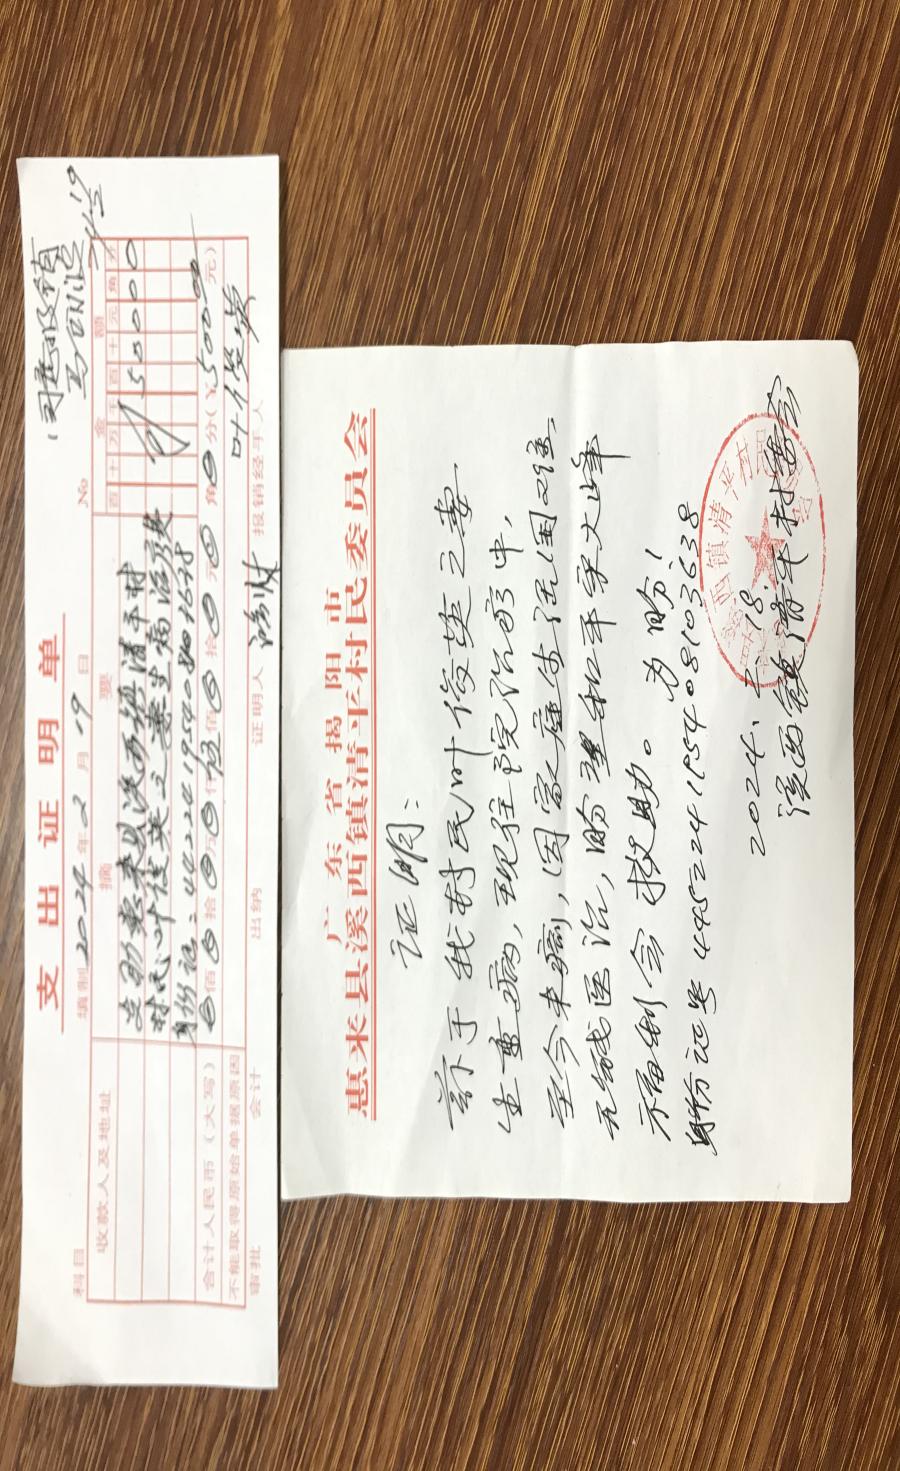 同意报销
支出证明单
科目
填制 2024 年 2 月 19 日
No
收款人及地址
摘要
金额
百 十 万 千 百 十 元 角 分
惠来县溪西镇清平村
村民叶俊英之妻生病治疗费
¥ 5 0 0 0 0
身份证:
合计人民币(大写)
佰 拾 万 仟 伍 佰 拾 元 角 分(¥ 500.00 元)
不能取得原始单据原因
审批
会计
出纳
证明人
报销经手人
广东省揭阳市
惠来县溪西镇清平村民委员会
证明:
兹于我村民叶俊英之妻
生重病,现住院治疗中,
至今未痊,因家庭生活困难,
无钱医治,盼望和平宋大峰
示福利会救助。为盼!
身份证号 445224195408103638
2024. 2. 18.
溪西镇清平村委会
溪西镇清平村